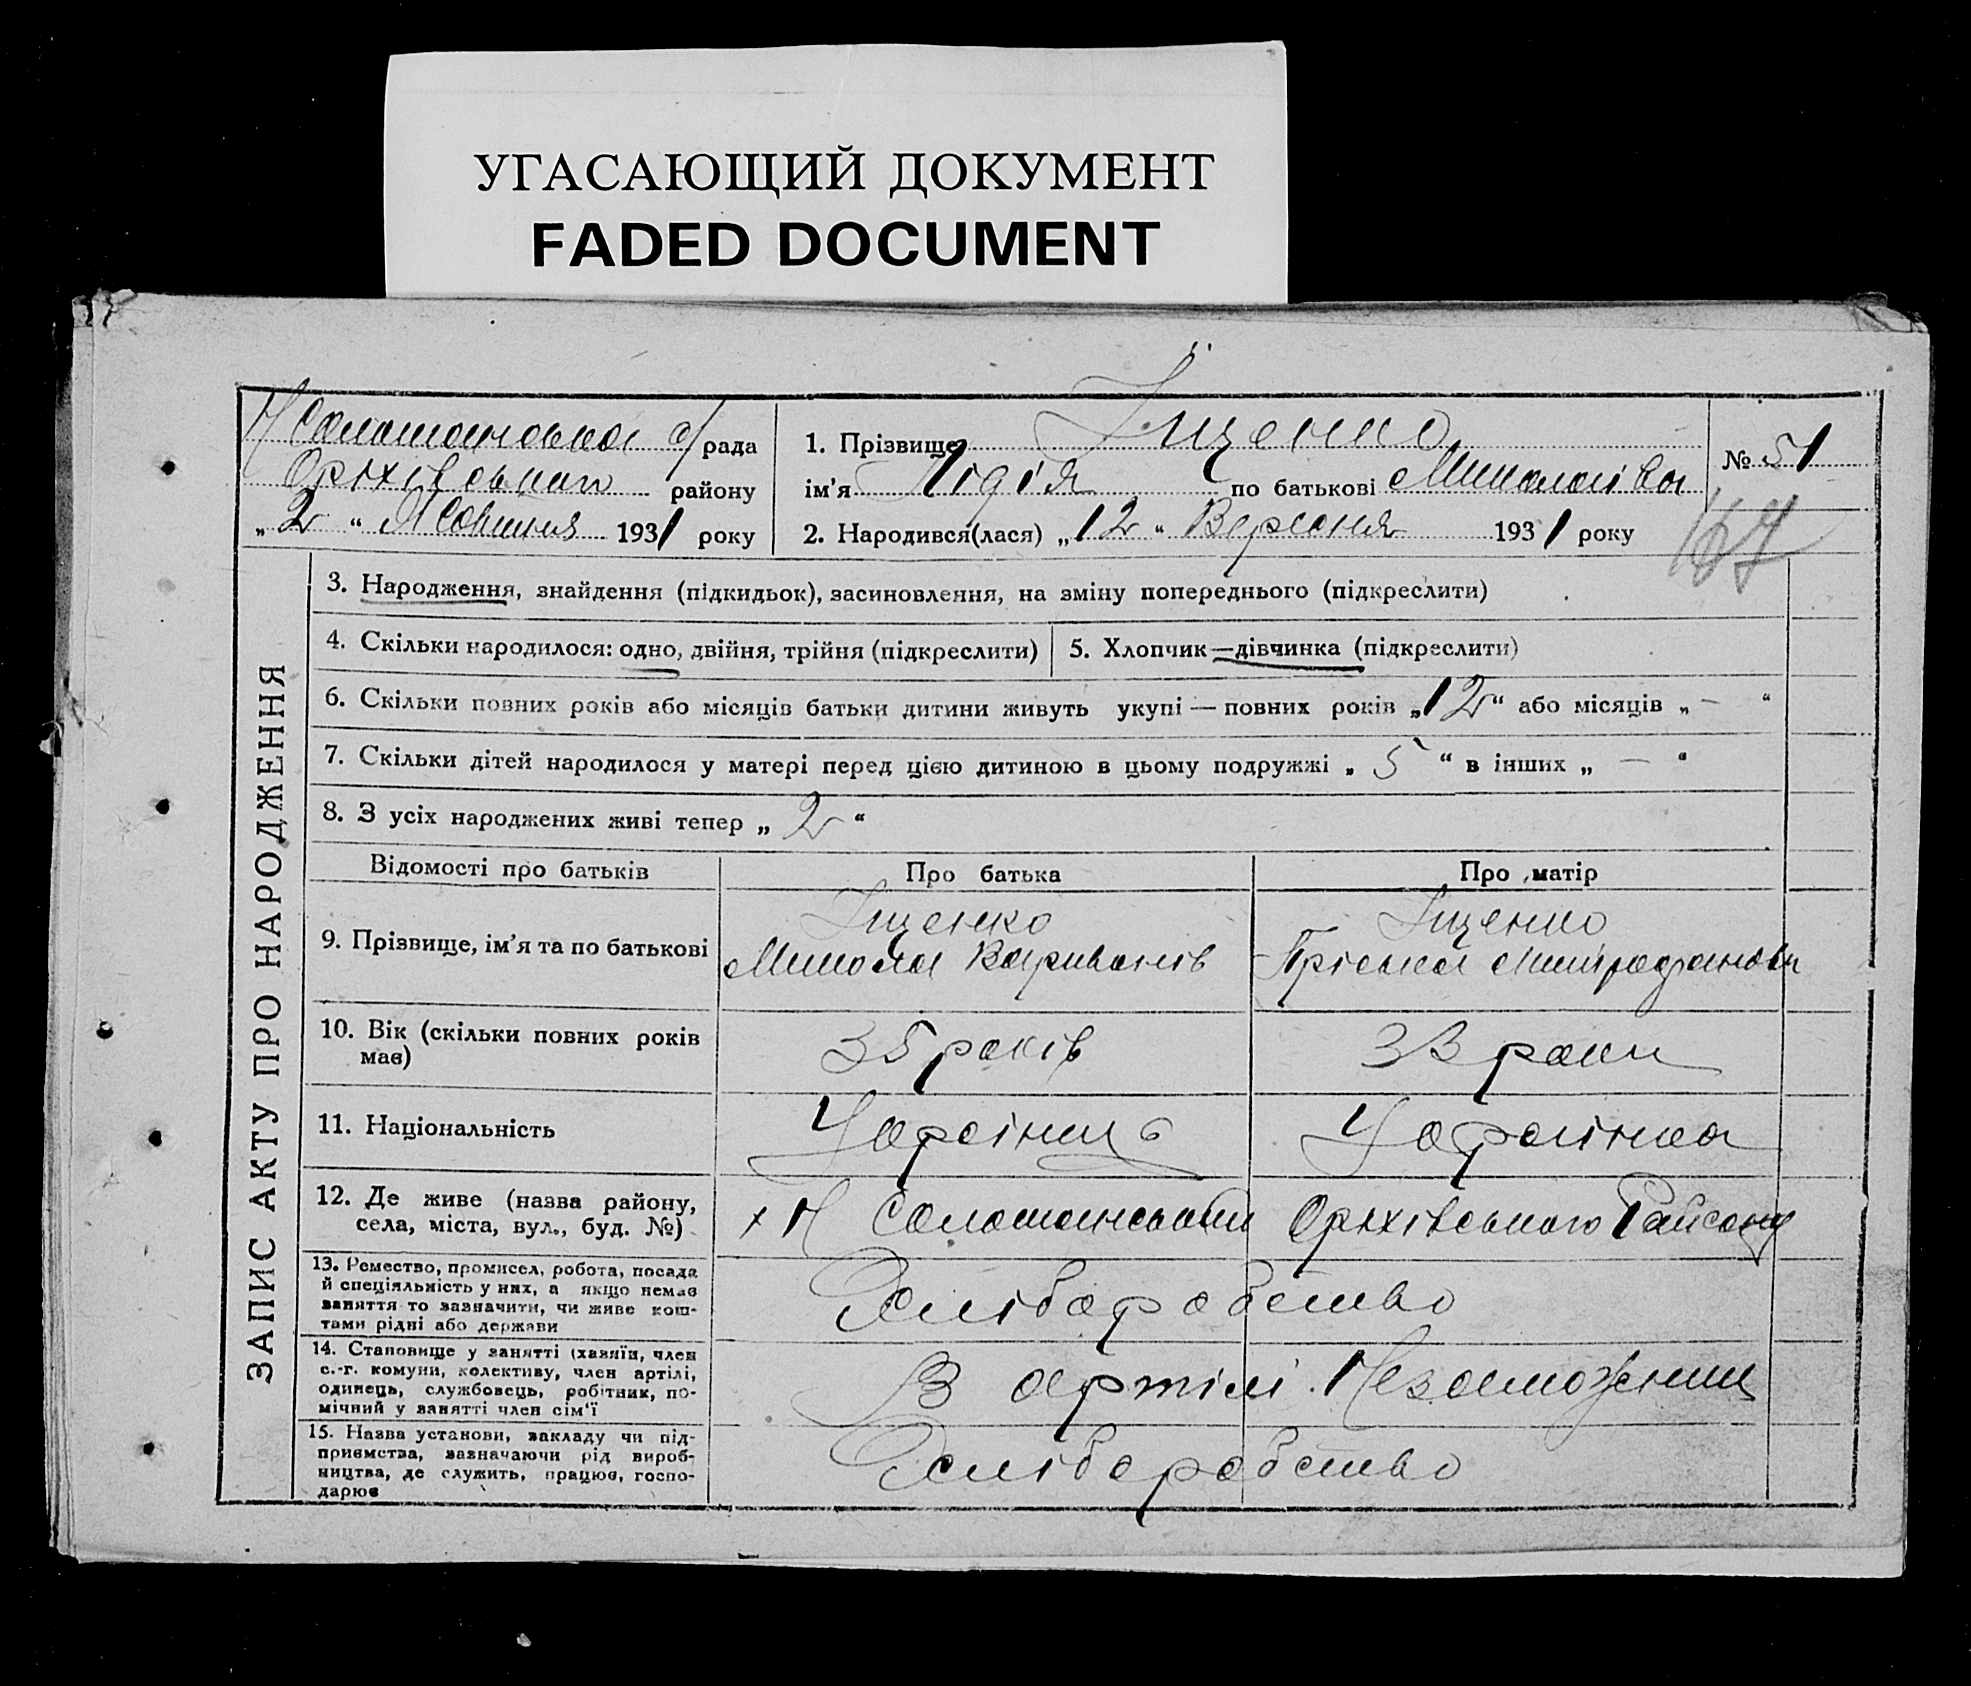 УГАСАЮЩИЙ ДОКУМЕНТ
FADED DOCUMENT
Н Соломоинська с/рада
Оріхівського району
„2“ Жовтня 1931 року
1. Прізвище Іщенко
ім'я Лідія по батькові Миколаївна
2. Народився(лася) „12“ Вересня 1931 року
№ 51
167
ЗАПИС АКТУ ПРО НАРОДЖЕННЯ
3. Народження, знайдення (підкидьок), засиновлення, на зміну попереднього (підкреслити)
4. Скільки народилося: одно, двійня, трійня (підкреслити)
5. Хлопчик—дівчинка (підкреслити)
6. Скільки повних років або місяців батьки дитини живуть укупі — повних років „12“ або місяців „—“
7. Скільки дітей народилося у матері перед цією дитиною в цьому подружжі „5“ в інших „—“
8. З усіх народжених живі тепер „2“
Відомості про батьків
Про батька
Про матір
9. Прізвище, ім'я та по батькові
Іщенко
Микола
Іщенко
10. Вік (скільки повних років
має)
35 років
33 роки
11. Національність
Українець
Українка
12. Де живе (назва району,
села, міста, вул., буд. №)
х Н Оріхівського Району
13. Ремество, промисел, робота, посада
й спеціяльність у них, а якщо немає
заняття то зазначити, чи живе кош-
тами рідні або держави
Хліборобство
14. Становище у занятті (хазяїн, член
с.-г. комуни, колективу, член артілі,
одинець, службовець, робітник, по-
мічний у занятті член сім'ї
В артілі Незаможник
15. Назва установи, закладу чи під-
приємства, зазначаючи рід вироб-
ництва, де служить, працює, госпо-
дарює
Хліборобство